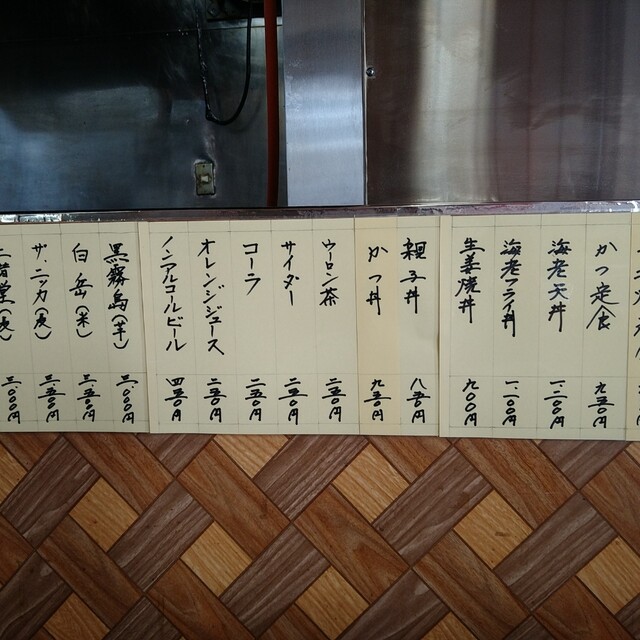 かつ定食 九五〇円
海老天丼 一二〇〇円
海老フライ丼 一一〇〇円
生姜焼丼 九〇〇円
親子丼 八五〇円
かつ丼 九五〇円
ウーロン茶 二五〇円
サイダー 二五〇円
コーラ 二五〇円
オレンジジュース 二五〇円
ノンアルコールビール 四五〇円
黒霧島(芋) 三〇〇〇円
白岳(米) 三五〇〇円
ザ・ニッカ(麦) 三五〇〇円
二階堂(麦) 三〇〇〇円